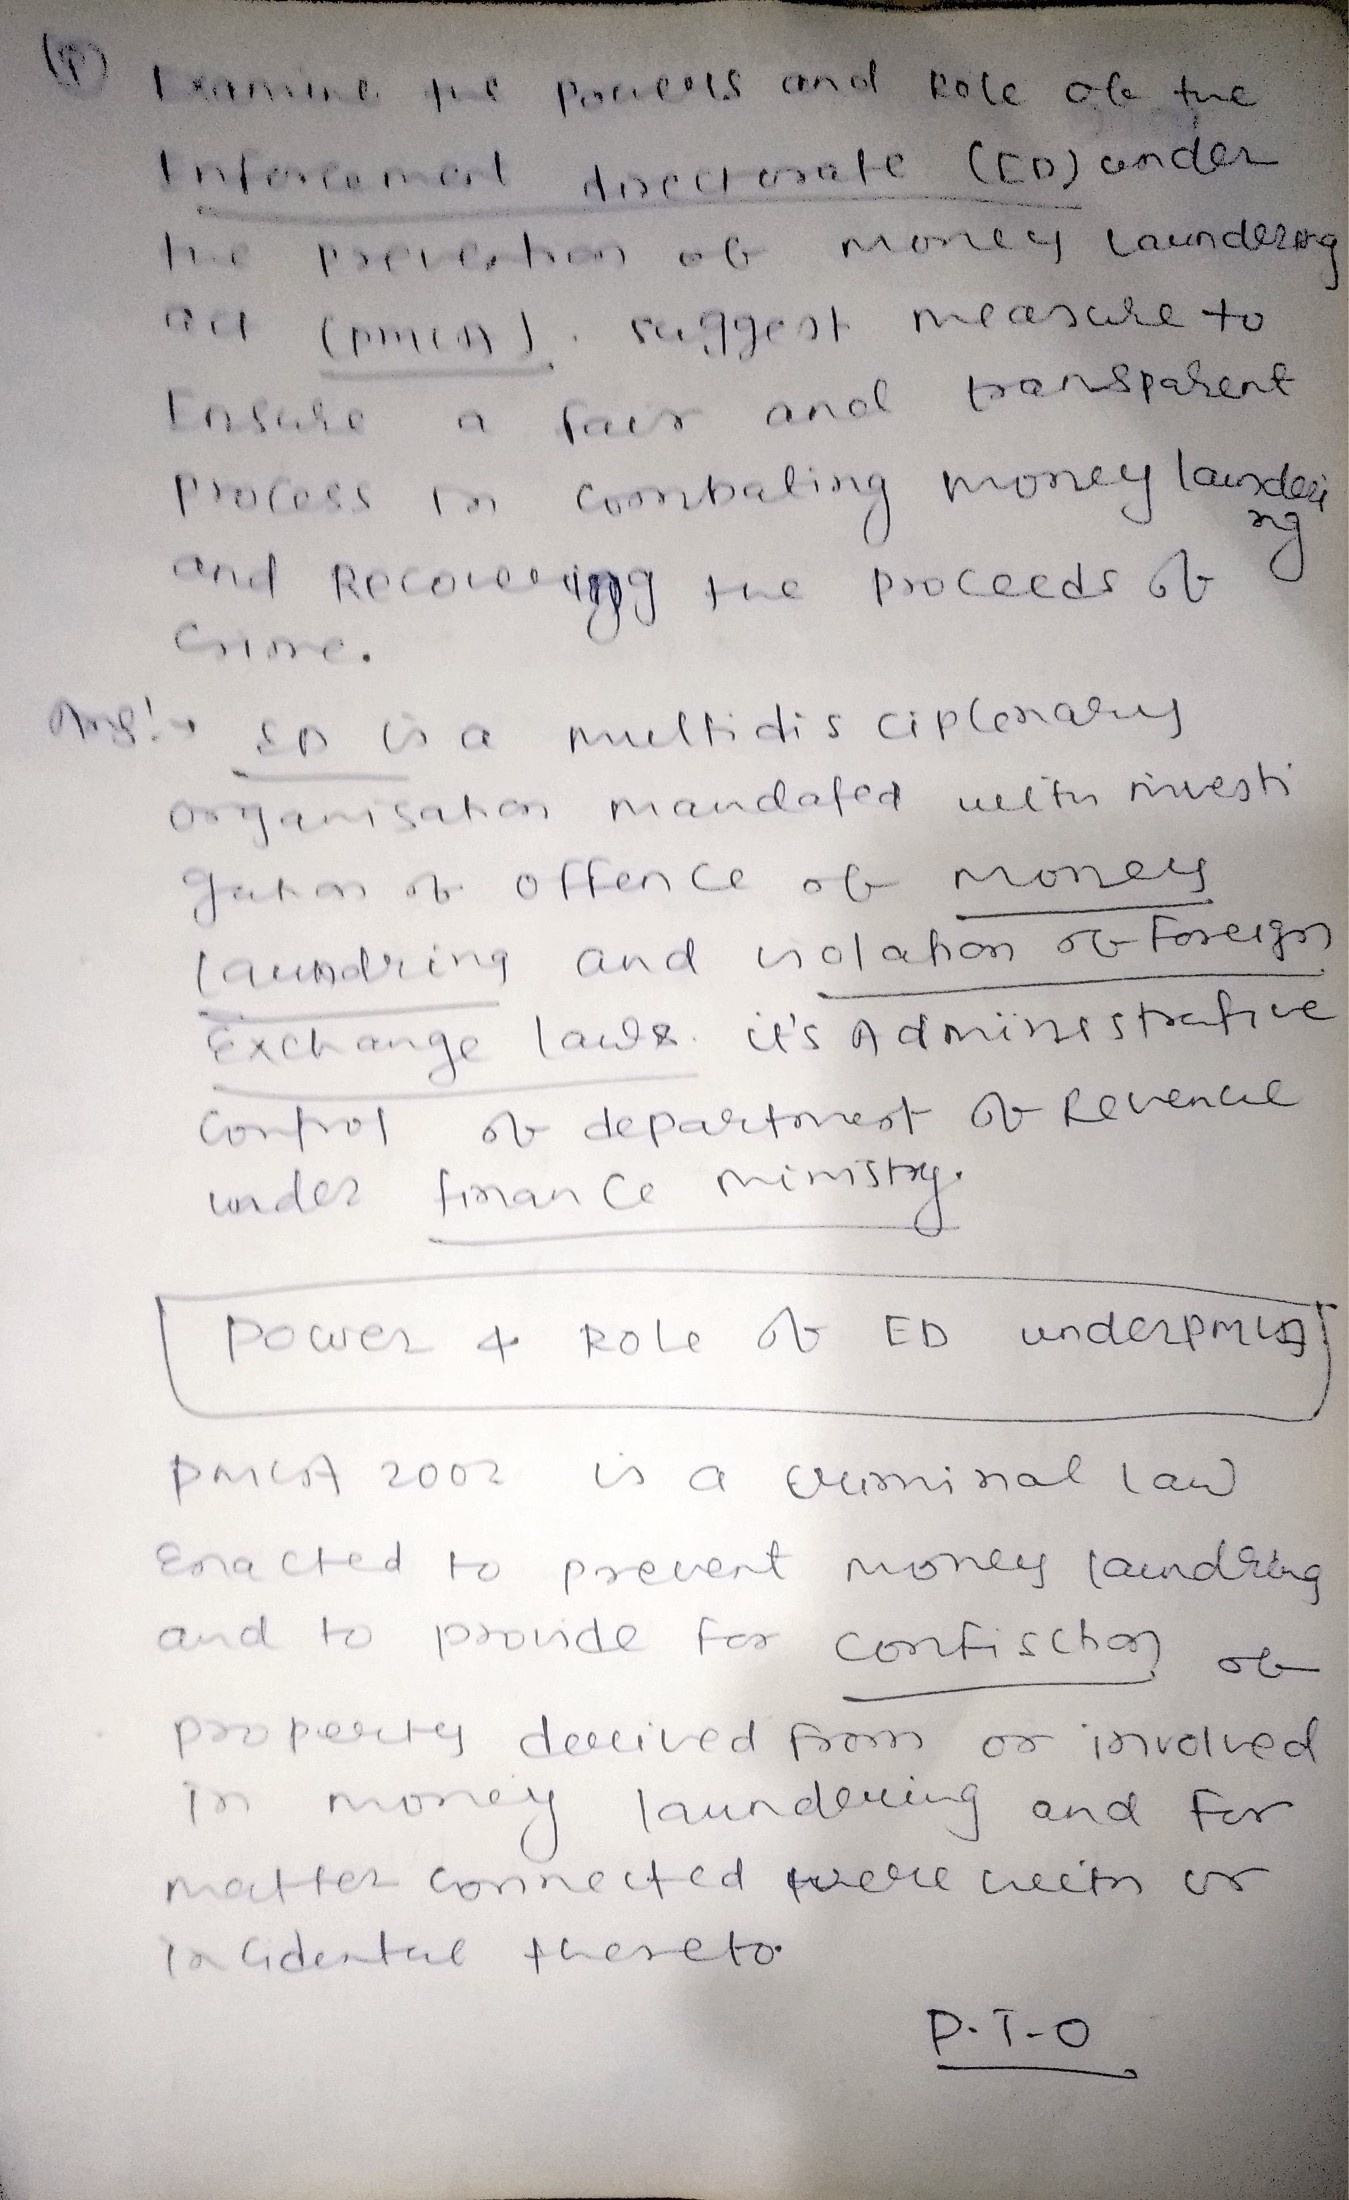 (9) Examine the powers and Role of the
Enforcement directorate (ED) under
the prevention of money laundering
act (PMLA). suggest measure to
Ensure a fair and transparent
process in combating money launderi
ng
and Recovering the proceeds of
Crime.
Ans:→ ED is a multidisciplenary
organisation mandated with investi
gation of offence of money
laundring and violation of foreign
Exchange laws. it's Administrative
control of department of Revenue
under finance ministry.
Power & Role of ED under PMLA
PMLA 2002 is a criminal law
Enacted to prevent money laundring
and to provide for confisction of
property derived from or involved
in money laundering and for
matter connected therewith or
incidental thereto.
P.T-O